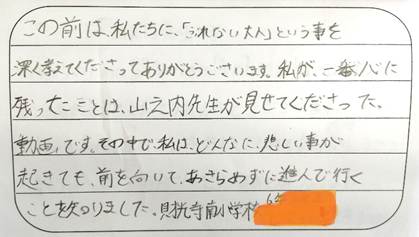 この前は、私たちに、「うれない大人」という事を
深く教えてくださってありがとうございます。私が、一番心に
残ったことは、山之内先生が見せてくださった、
動画です。その中で、私は、どんなに、悲しい事が
起きても、前を向いて、あきらめずに進んで行く
ことを知りました。小学校 6年